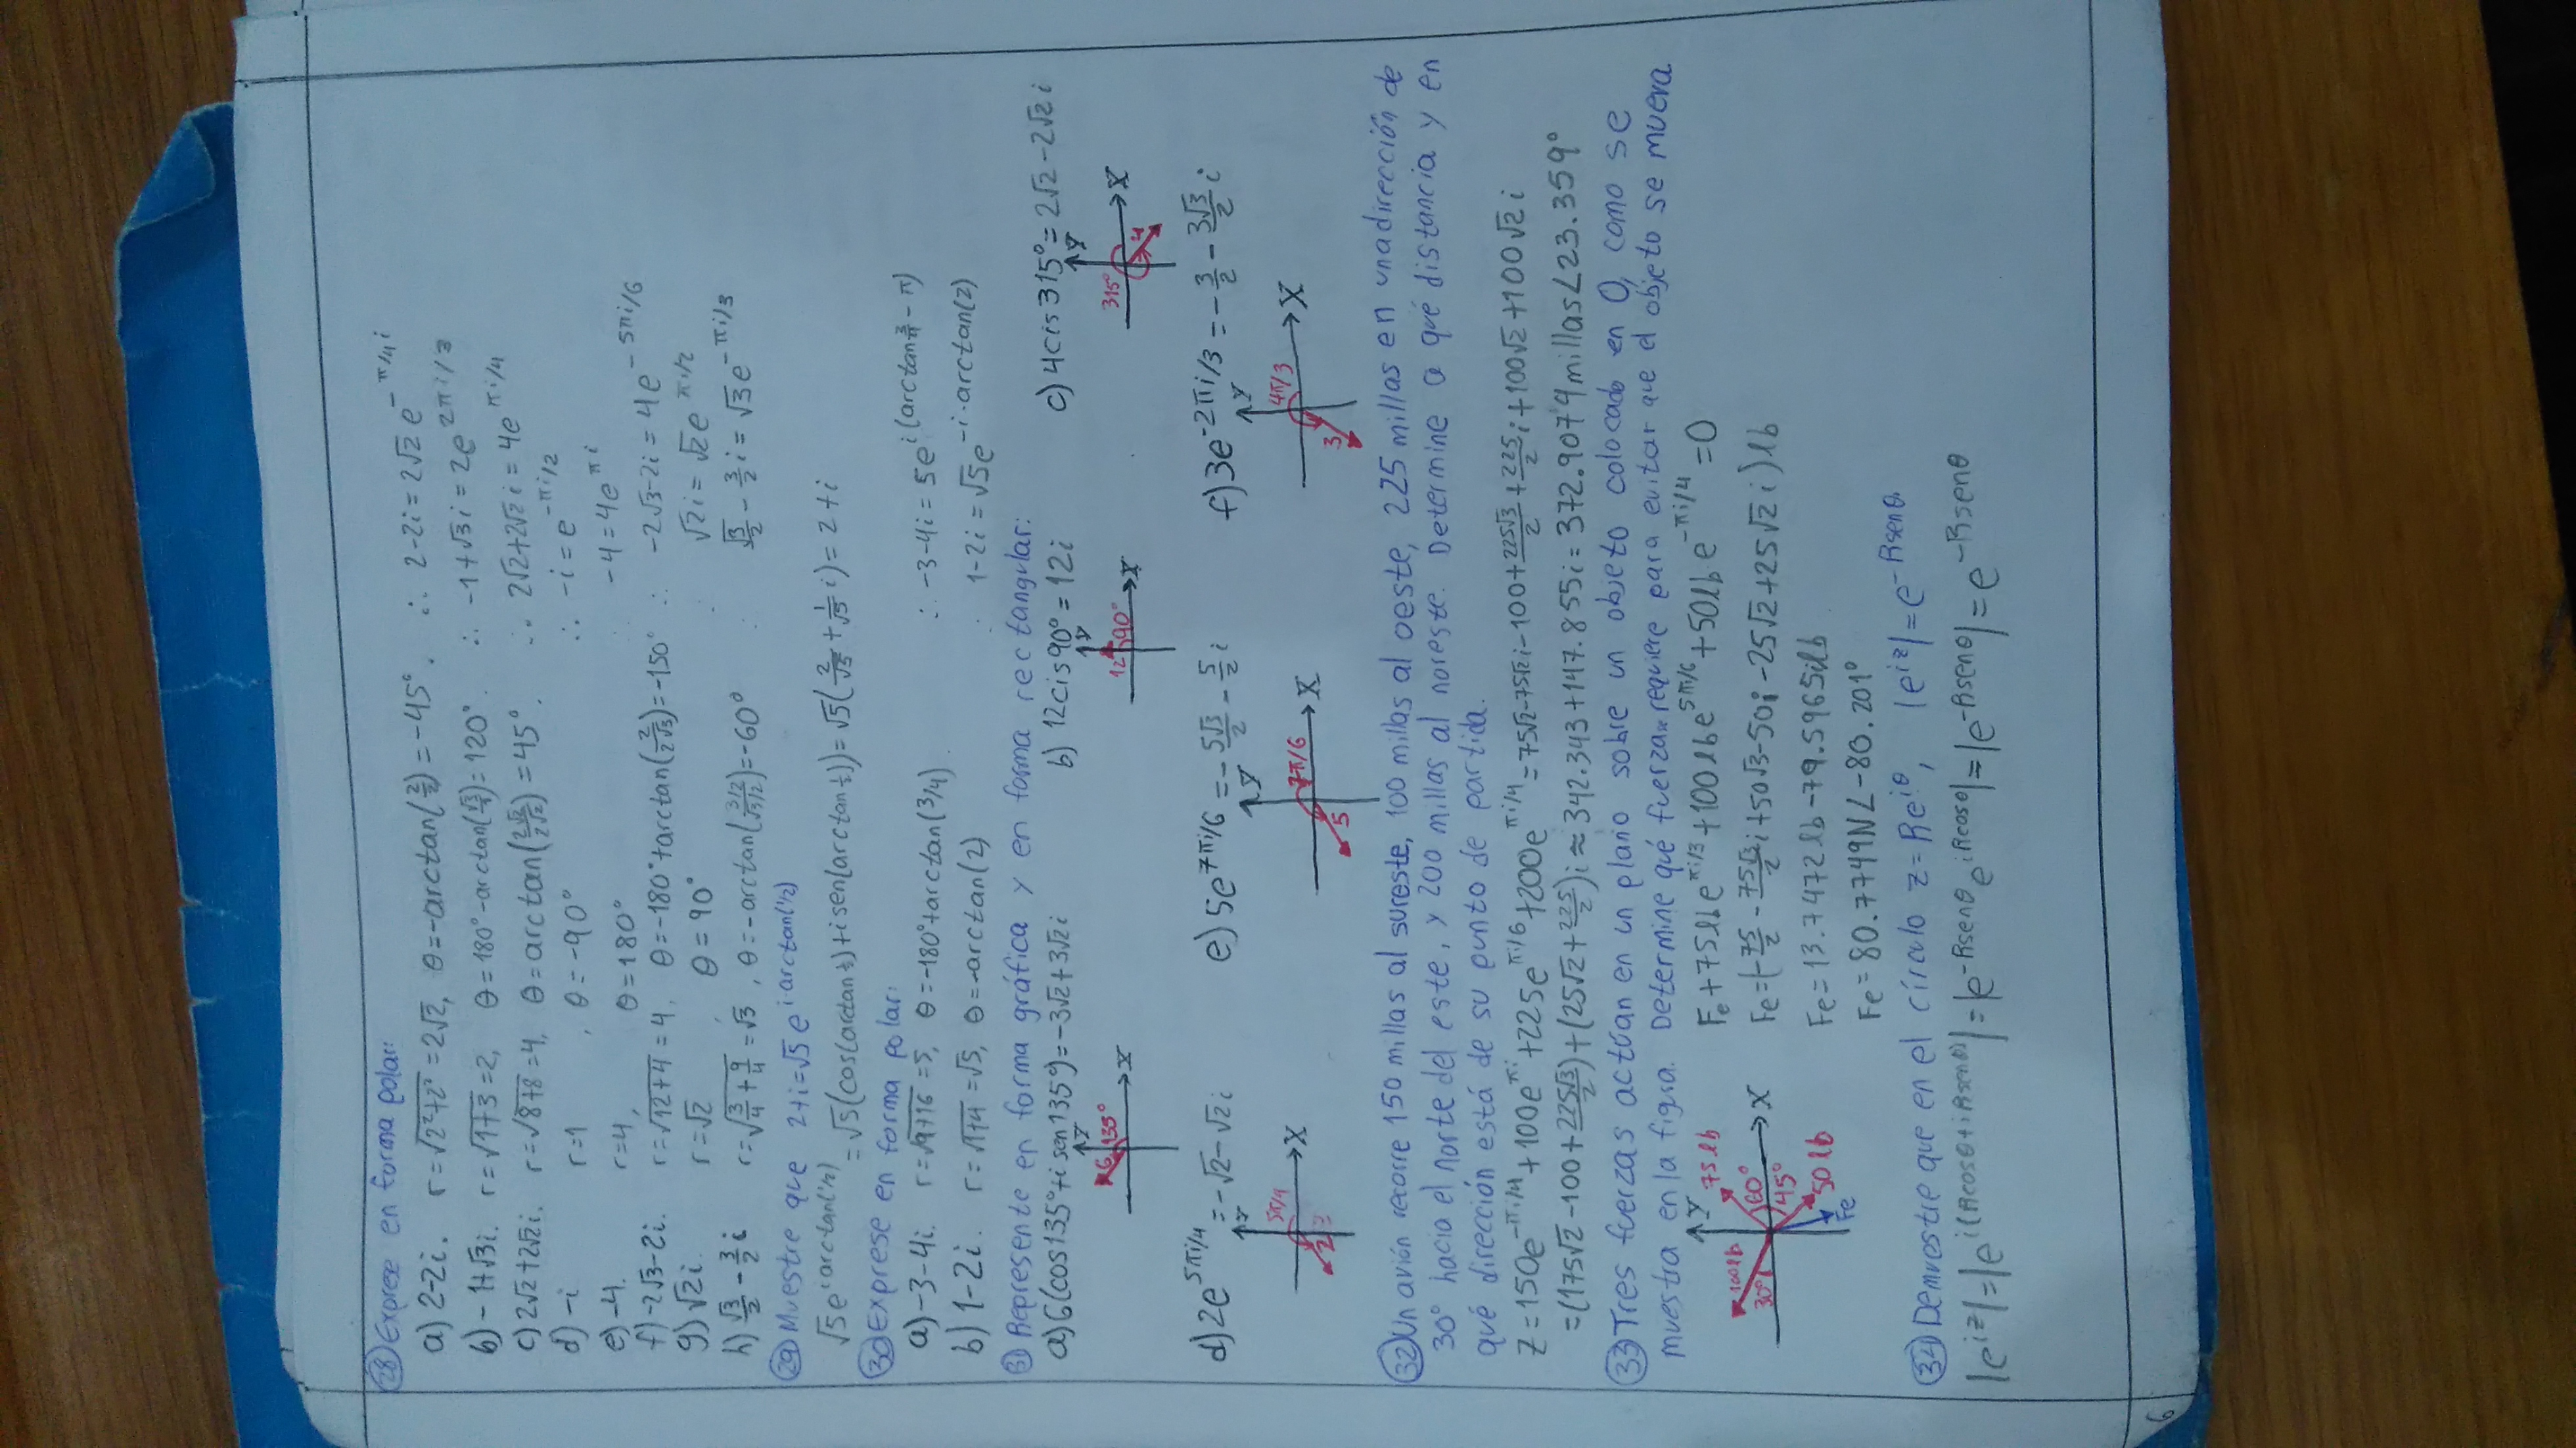 28 Exprese en forma polar:
a) 2-2i. r=√(2²+2²)=2√2, θ=-arctan(2/2)=-45°. ∴ 2-2i=2√2 e^(-π/4 i)
b) -1+√3i. r=√(1+3)=2, θ=180°-arctan(√3/1)=120°. ∴ -1+√3i=2e^(2πi/3)
c) 2√2+2√2i. r=√(8+8)=4, θ=arctan(2√2/2√2)=45°. ∴ 2√2+2√2i=4e^(πi/4)
d) -i r=1, θ=-90° ∴ -i=e^(-πi/2)
e) -4. r=4, θ=180° -4=4e^(πi)
f) -2√3-2i. r=√(12+4)=4, θ=-180°+arctan(2/2√3)=-150° ∴ -2√3-2i=4e^(-5πi/6)
g) √2i. r=√2, θ=90° ∴ √2i=√2e^(πi/2)
h) √3/2 - 3/2 i r=√(3/4+9/4)=√3, θ=-arctan((3/2)/(√3/2))=-60° ∴ √3/2 - 3/2 i=√3e^(-πi/3)
29 Muestre que 2+i=√5 e^(i·arctan(1/2))
√5e^(i arctan(1/2))=√5(cos(arctan 1/2)+i sen(arctan 1/2))=√5(2/√5+1/√5 i)=2+i
30 Exprese en forma polar:
a) -3-4i. r=√(9+16)=5, θ=-180°+arctan(3/4). ∴ -3-4i=5e^(i(arctan 3/4 - π))
b) 1-2i. r=√(1+4)=√5, θ=-arctan(2) ∴ 1-2i=√5e^(-i·arctan(2))
31 Represente en forma gráfica y en forma rectangular:
a) 6(cos135°+i sen135°)=-3√2+3√2i b) 12cis90°=12i c) 4cis315°=2√2-2√2i
Y 6 135° X Y 12 90° X Y 315° X 4
d) 2e^(5πi/4)=-√2-√2i e) 5e^(7πi/6)=-5√3/2 - 5/2 i f) 3e^(-2πi/3)=-3/2 - 3√3/2 i
Y 5π/4 X 2 Y 7π/6 X 5 Y 4π/3 X 3
32 Un avión recorre 150 millas al sureste, 100 millas al oeste, 225 millas en una dirección de
30° hacia el norte del este, y 200 millas al noreste. Determine a qué distancia y en
qué dirección está de su punto de partida.
Z=150e^(-πi/4)+100e^(πi)+225e^(πi/6)+200e^(πi/4)=75√2-75√2i-100+225√3/2+225/2 i+100√2+100√2i
=(175√2-100+225√3/2)+(25√2+225/2)i≈342.343+147.855i=372.9074millas∠23.359°
33 Tres fuerzas actúan en un plano sobre un objeto colocado en O, como se
muestra en la figura. Determine qué fuerza se requiere para evitar que el objeto se mueva.
Y 75lb 100lb 60° 30° X 45° 50lb Fe
Fe+75lb e^(πi/3)+100lb e^(5πi/6)+50lb e^(-πi/4)=0
Fe=(-75/2 - 75√3/2 i+50√3-50i-25√2+25√2i)lb
Fe=13.7472lb-79.5965ilb
Fe=80.7749N∠-80.201°
34 Demuestre que en el círculo z=Re^(iθ), |e^(iz)|=e^(-Rsenθ).
|e^(iz)|=|e^(i(Rcosθ+iRsenθ))|=|e^(-Rsenθ)e^(iRcosθ)|=|e^(-Rsenθ)|=e^(-Rsenθ)
6